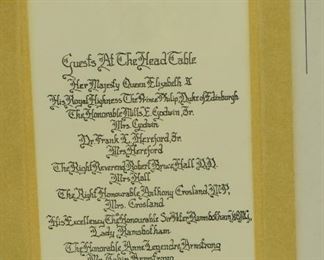 Guests At The Head Table
Her Majesty Queen Elizabeth II
His Royal Highness The Prince Philip, Duke of Edinburgh
The Honorable Mills E. Godwin Jr.
Mrs. Godwin
Dr. Frank L. Hereford, Jr.
Mrs. Hereford
The Right Reverend Robert Bruce Hall D.D.
Mrs. Hall
The Right Honourable Anthony Crosland, M.P.
Mrs. Crosland
His Excellency The Honourable Sir Peter Ramsbotham
Lady Ramsbotham
The Honorable Anne Legendre Armstrong
Mr. Tobin Armstrong